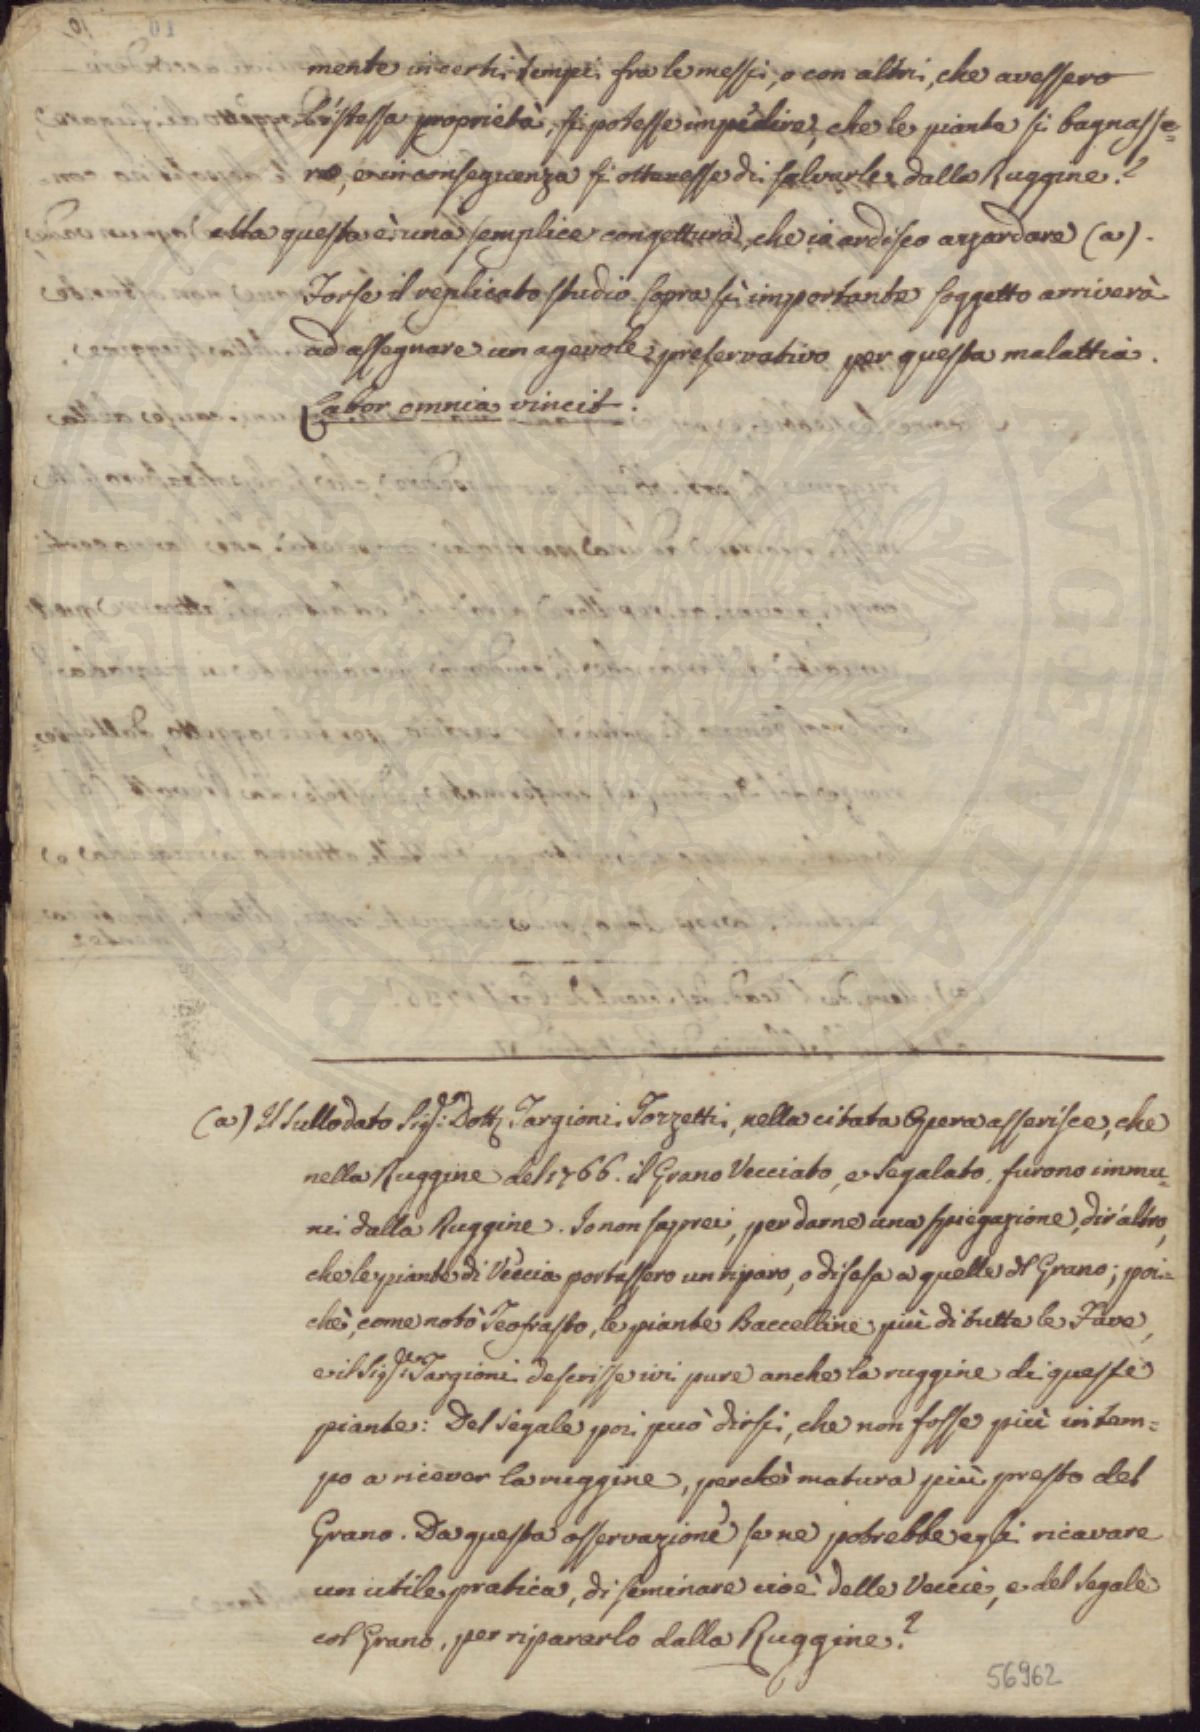 mente in certi tempi fra le messi, o con altri, che avessero
l'istessa proprietà, si potesse impedire, che le piante si bagnasse=
ro, e in conseguenza si ottenesse di salvarle dalla Ruggine?
Ma questa è una semplice congettura, che io ardisco azzardare (a).
Forse il replicato studio sopra sì importante soggetto arriverà
ad assegnare un agevole preservativo per questa malattia.
Labor omnia vincit.
(a) Il sullodato Sig.r Dott. Targioni Tozzetti, nella citata Opera asserisce, che
nella Ruggine del 1766. il Grano Vecciato, e Segalato, furono immu=
ni dalla Ruggine. Io non saprei, per darne una spiegazione, dir altro,
che le piante di Veccia portassero un riparo, o difesa a quelle del Grano; poi=
chè, come notò Teofrasto, le piante Baccelline più di tutte le Fave,
e il Sig.r Targioni descrisse ivi pure anche la ruggine di queste
piante: Del Segale poi può dirsi, che non fosse più in tem=
po a ricever la ruggine, perchè matura più presto del
Grano. Da questa osservazione se ne potrebbe egli ricavare
un utile pratica, di seminare cioè delle Veccie, e del Segale
col Grano, per ripararlo dalla Ruggine?
56962